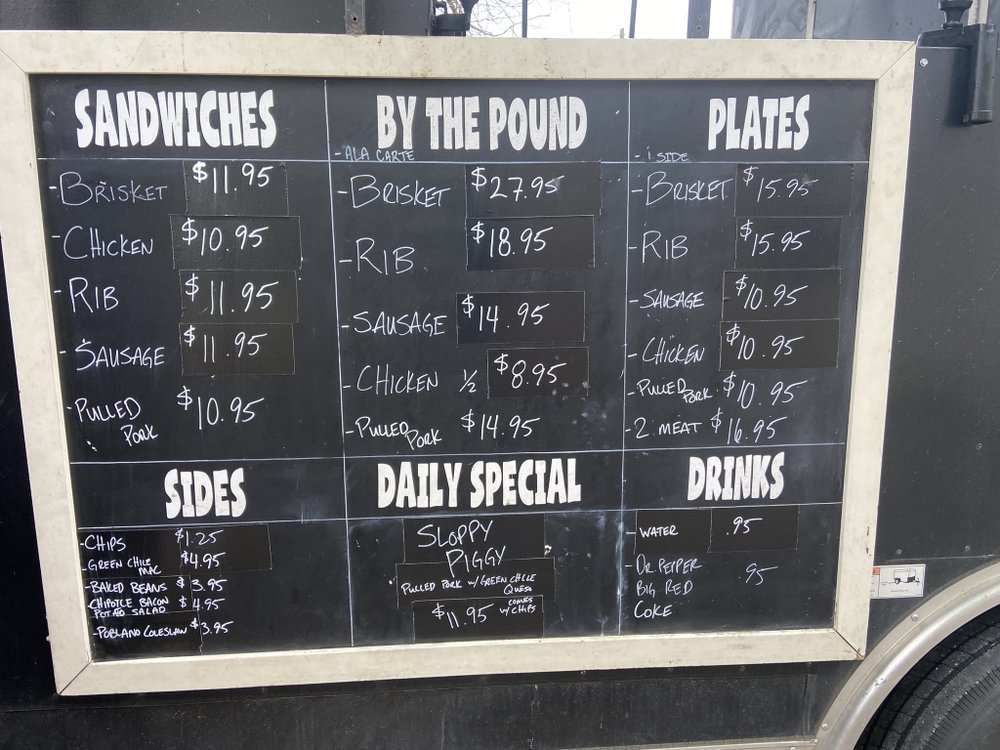 SANDWICHES
- BRISKET $11.95
- CHICKEN $10.95
- RIB $11.95
- SAUSAGE $11.95
- PULLED PORK $10.95
BY THE POUND
- ALA CARTE
- BRISKET $27.95
- RIB $18.95
- SAUSAGE $14.95
- CHICKEN 1/2 $8.95
- PULLED PORK $14.95
PLATES
- 1 SIDE
- BRISKET $15.95
- RIB $15.95
- SAUSAGE $10.95
- CHICKEN $10.95
- PULLED PORK $10.95
- 2 MEAT $16.95
SIDES
- CHIPS $1.25
- GREEN CHILE MAC $4.95
- BAKED BEANS $3.95
CHIPOTLE BACON POTATO SALAD $4.95
- POBLANO COLESLAW $3.95
DAILY SPECIAL
SLOPPY
PIGGY
PULLED PORK W/ GREEN CHILE
QUESO
$11.95 COMES W/ CHIPS
DRINKS
- WATER .95
- DR PEPPER
BIG RED .95
COKE